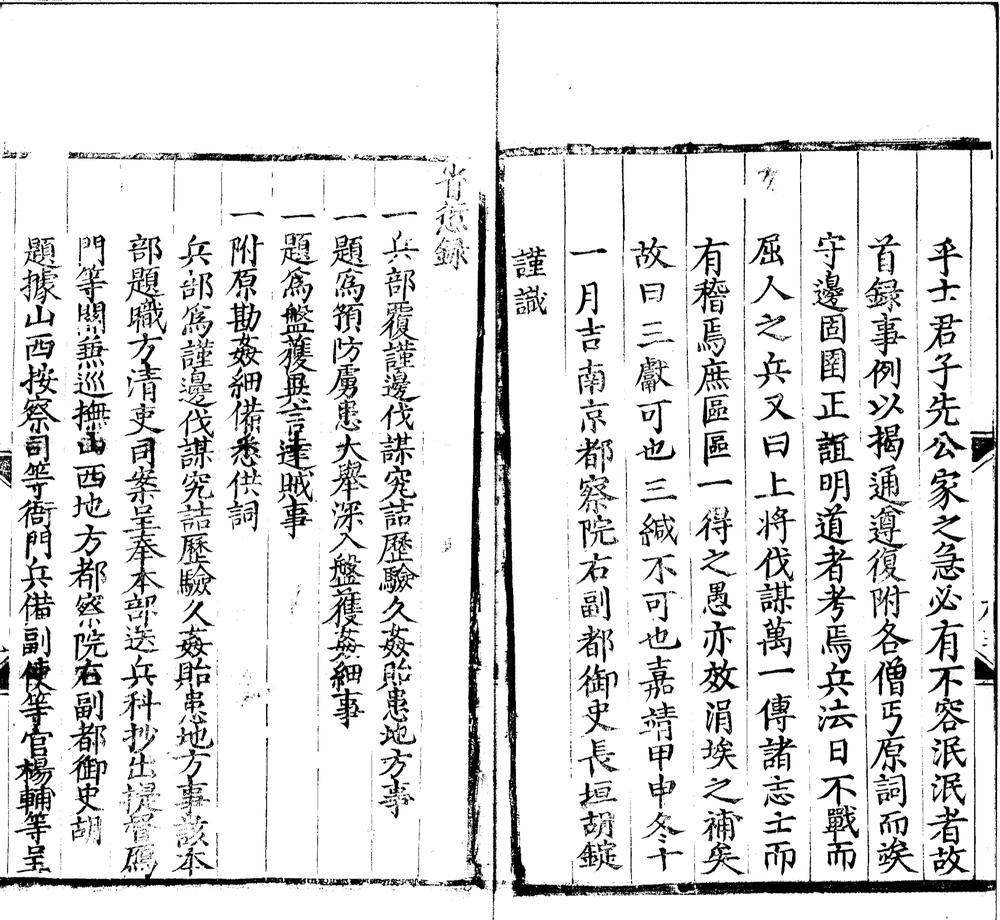 乎士君子先公家之急必有不容泯泯者故
首録事例以揭通遵復附各僧丐原詞而竢
守邊固圉正誼明道者考焉兵法曰不戰而
屈人之兵又曰上將伐謀萬一傳諸志士而
有稽焉庶區區一得之愚亦效涓埃之補矣
故曰三獻可也三緘不可也嘉靖甲申冬十
一月吉南京都察院右副都御史長垣胡錠
謹識
省愆録
一兵部覆謹邊伐謀究詰歷驗久姦貽患地方事
一題爲預防虜患大舉深入盤䕶姦細事
一題爲盤䕶異言達賊事
一附原勘姦細備悉供詞
兵部爲謹邊伐謀究詰歷驗久姦貽患地方事該本
部題職方清吏司案呈奉本部送兵科抄出提督鴈
門等關兼巡撫山西地方都察院右副都御史胡
題據山西按察司等衙門兵備副使等官楊輔等呈